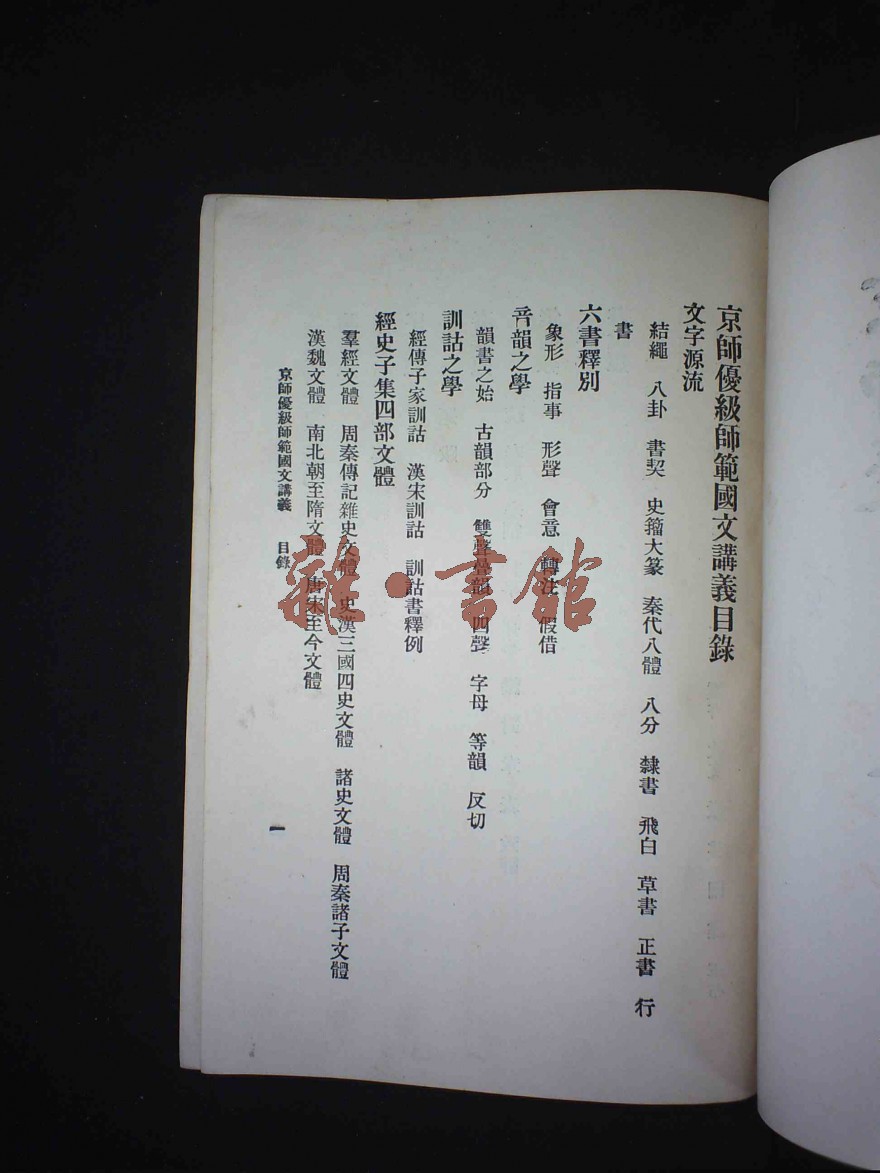 京師優級師範國文講義目錄
文字源流
結繩 八卦 書契 史籀大篆 秦代八體 八分 隸書 飛白 草書 正書 行
書
六書釋別
象形 指事 形聲 會意 轉注 假借
音韻之學
韻書之始 古韻部分 雙聲疊韻 四聲 字母 等韻 反切
訓詁之學
經傳子家訓詁 漢宋訓詁 訓詁書釋例
經史子集四部文體
羣經文體 周秦傳記雜史文體 史漢三國四史文體 諸史文體 周秦諸子文體
漢魏文體 南北朝至隋文體 唐宋至今文體
京師優級師範國文講義 目錄
一
書館